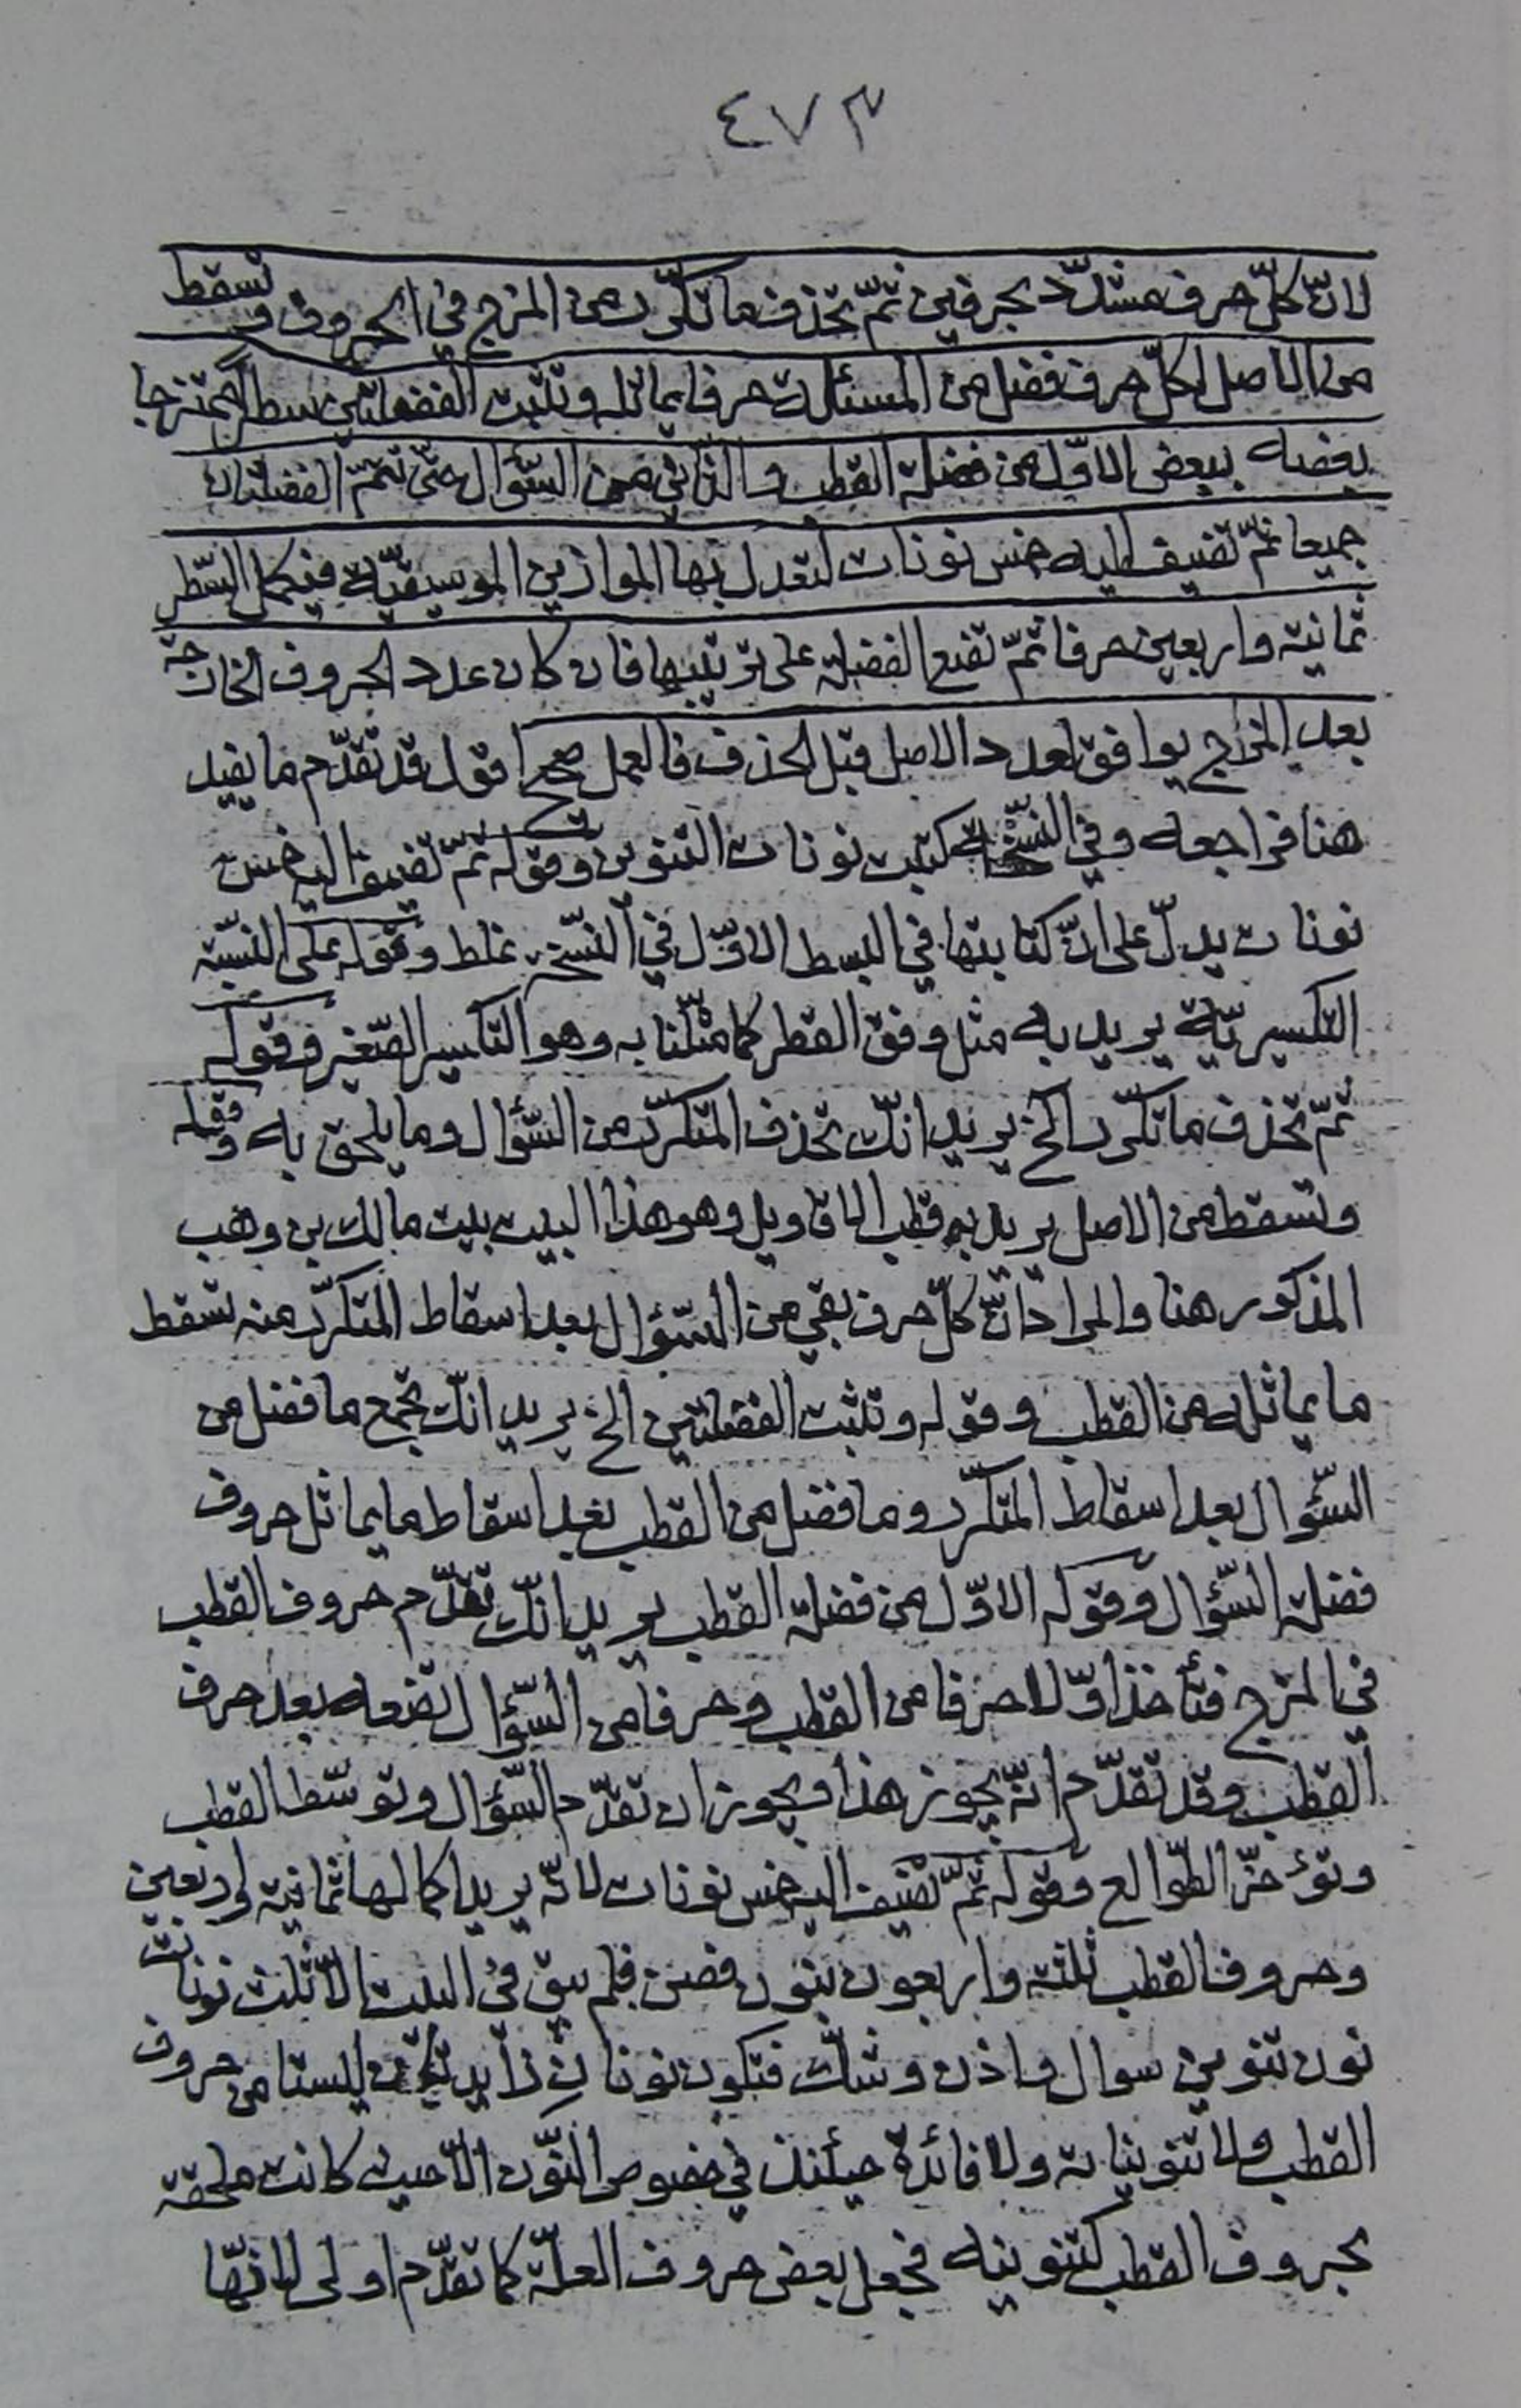 ٤٧٣
لانّ كلّ حرف مشدّد بحرفين ثمّ تحذف ما تكرّر من المزج في الحروف وتسقط
من الاصل لكلّ حرف فضل من المسئلة حرفا يماثله وتثبت الفضلتين سطرا ممتزجا
بعضه ببعض الاوّل من فضلة القطب والثاني من السّؤال حتّى تتمّ الفضلتان
جميعا ثمّ تضيف اليه خمس نونات لتعدل بها الموازين الموسيقيّة فيكمل السّطر
ثمانية واربعين حرفا ثمّ تضع الفضلة على ترتيبها فان كان عدد الحروف الخارجة
بعد المزاج يوافق لعدد الاصل قبل الحذف فالعمل صحيح اقول قد تقدّم ما يفيد
هنا فراجعه وفي النسّخة كتبت نونات التنوين وقوله ثمّ تضيف اليه خمس
نونات يدلّ على انّ كتابتها في البسط الاوّل في النّسخ غلط وقوله على النّسبة
التكسيريّة يريد به مثل وفق القطر كما مثّلنا به وهو التكسير الصّغير وقوله
ثمّ تحذف ما تكرّر الخ يريد انّك تحذف المتكرّر من السّؤال وما يلحق به وقوله
وتسقط من الاصل يريد به قطب الاقاويل وهو هذا البيت بيت مالك بن وهب
المذكور هنا والمراد انّ كلّ حرف بقي من السّؤال بعد اسقاط المتكرّر منه تسقط
ما يماثله من القطب وقوله وتثبت الفضلتين الخ يريد انّك تجمع ما فضل من
السّؤال بعد اسقاط المتكرّر وما فضل من القطب بعد اسقاط ما يماثل حروف
فضلة السّؤال وقوله الاوّل من فضلة القطب يريد انّك تقدّم حروف القطب
في المزج فتأخذ اوّلا حرفا من القطب وحرفا من السّؤال تضعه بعد حرف
القطب وقد تقدّم انّه يجوز هذا ويجوز ان تقدّم السّؤال وتوسّط القطب
وتؤخّر الطّوالع وقوله ثمّ تضيف اليه خمس نونات لانّه يريد اكمالها ثمانية واربعين
وحروف القطب ثلثة واربعون بنون فصن فلم يبق في البيت الّا ثلث نونات
نون تنوين سوال واذن وشكّ فتكون نونان زايدتين ليستا من حروف
القطب ولا تنويناته ولا فائدة حينئذ في خصوص النّون الّا حيث كانت ملحقة
بحروف القطب كتنوينه فجعل بعض حروف العلّة كما تقدّم اولى لانّها